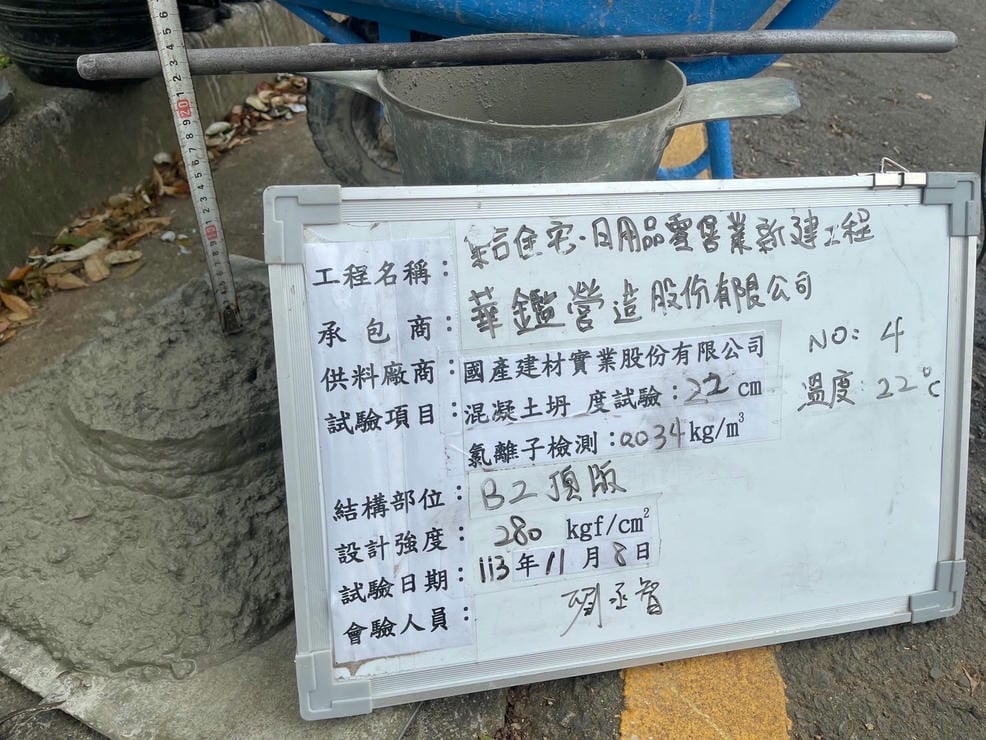 工程名稱： 信住宅．日用品零售業新建工程
承包商： 華鑑營造股份有限公司
供料廠商：國產建材實業股份有限公司
試驗項目：混凝土坍 度試驗：22 cm
氯離子檢測：0.034 kg/m³
結構部位： B2頂版
設計強度： 280 kgf/cm²
試驗日期： 113年11月8日
會驗人員： 劉丞智
NO： 4
溫度： 22°C